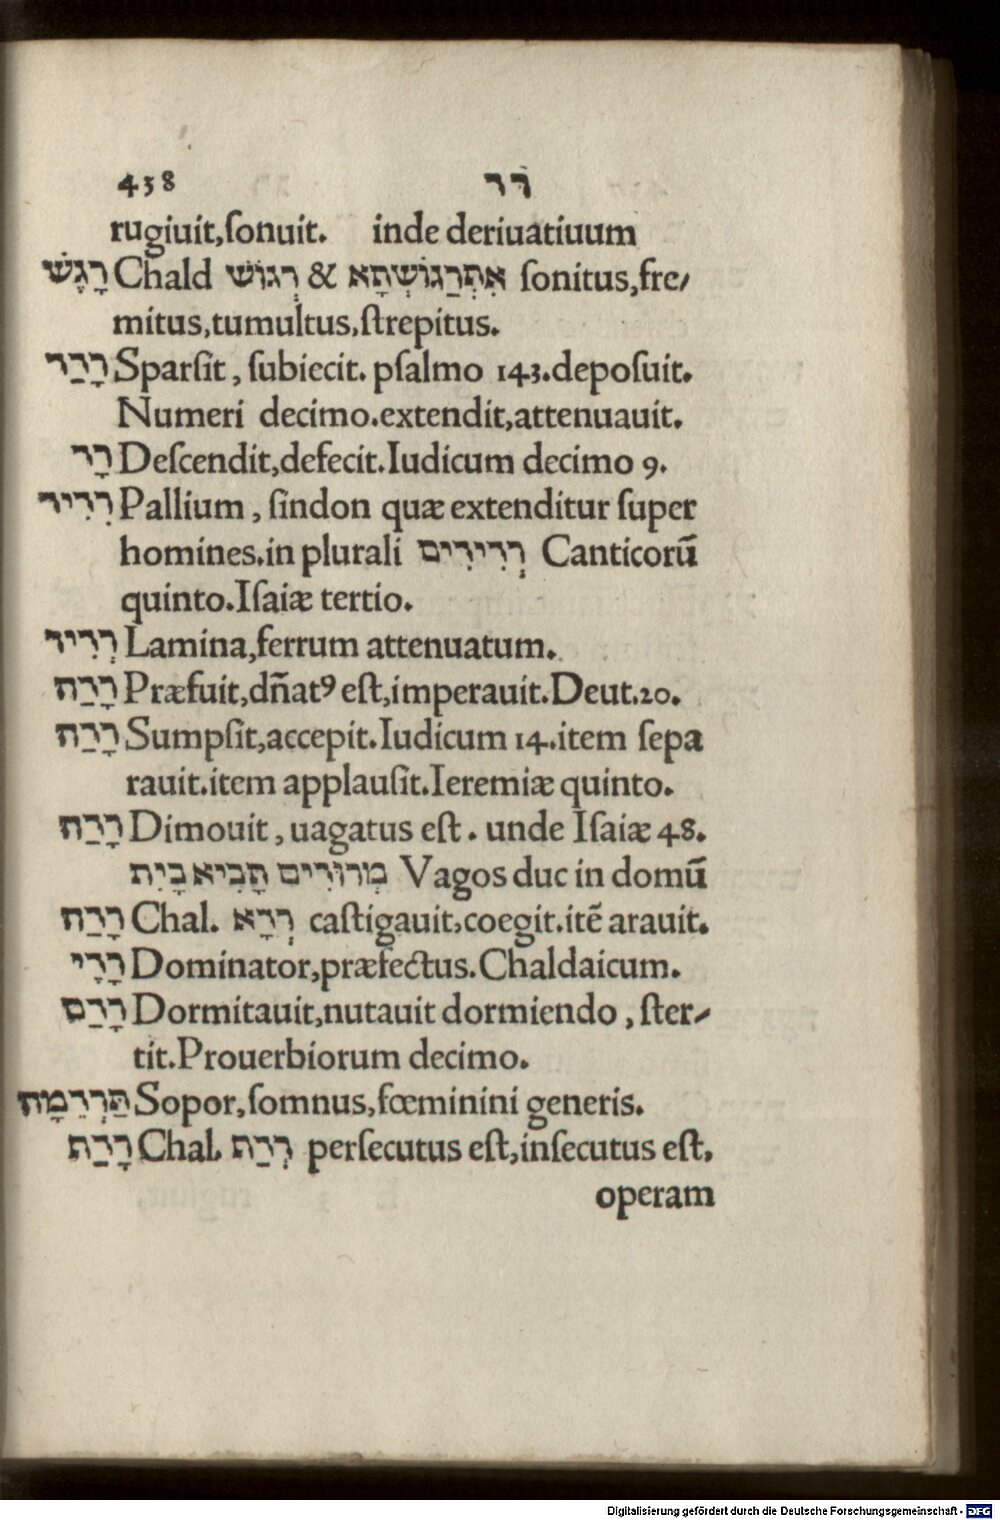 438 רד
rugiuit,ſonuit. inde deriuatiuum
רָגָשׁ Chald רְגוֹשׁ & אִתְרַגוֹשְׁתָא ſonitus,fre/
mitus,tumultus,ſtrepitus.
רָדַד Sparſit, ſubiecit. pſalmo 143.depoſuit.
Numeri decimo.extendit,attenuauit.
רָד Deſcendit,defecit.Iudicum decimo 9.
רִדִיד Pallium, ſindon quæ extenditur ſuper
homines.in plurali רְדִידִים Canticorū
quinto.Iſaiæ tertio.
רְדִיד Lamina,ferrum attenuatum.
רָדַה Præfuit,dn̄atꝰ eſt,imperauit.Deut.20.
רָדַה Sumpſit,accepit.Iudicum 14.item ſepa
rauit.item applauſit.Ieremiæ quinto.
רָדַה Dimouit, uagatus eſt. unde Iſaiæ 48.
מְרוּדִים תָּבִיא בָיִת Vagos duc in domū
רָדַה Chal. רְדָא caſtigauit,coegit.itē arauit.
רָדָי Dominator,præfectus.Chaldaicum.
רָדַם Dormitauit,nutauit dormiendo, ſter/
tit.Prouerbiorum decimo.
תַּרְדֵמָה Sopor,ſomnus,fœminini generis.
רָדַף Chal. רְדַף perſecutus eſt,inſecutus eſt,
operam
Digitalisierung gefördert durch die Deutsche Forschungsgemeinschaft - DFG